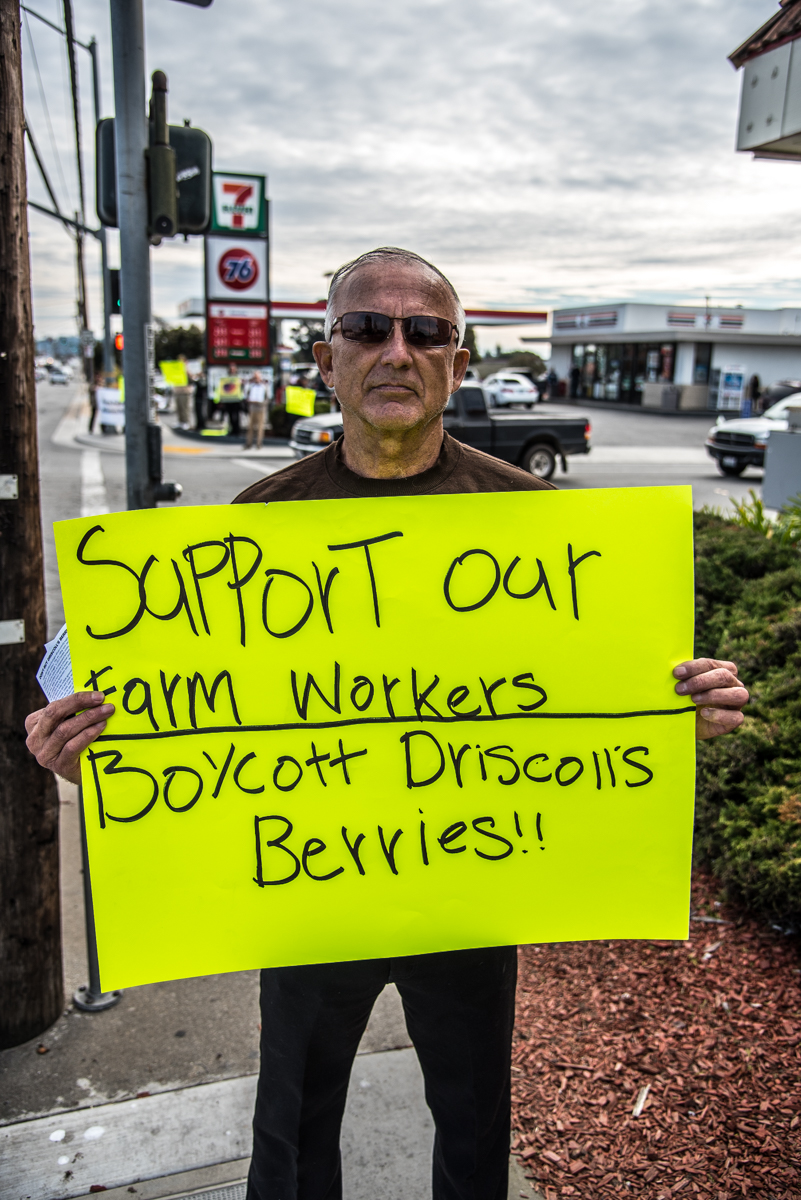 7
ELEVEN
76
SuPPorT our
Farm Workers
Boycott Driscoll's
Berries!!